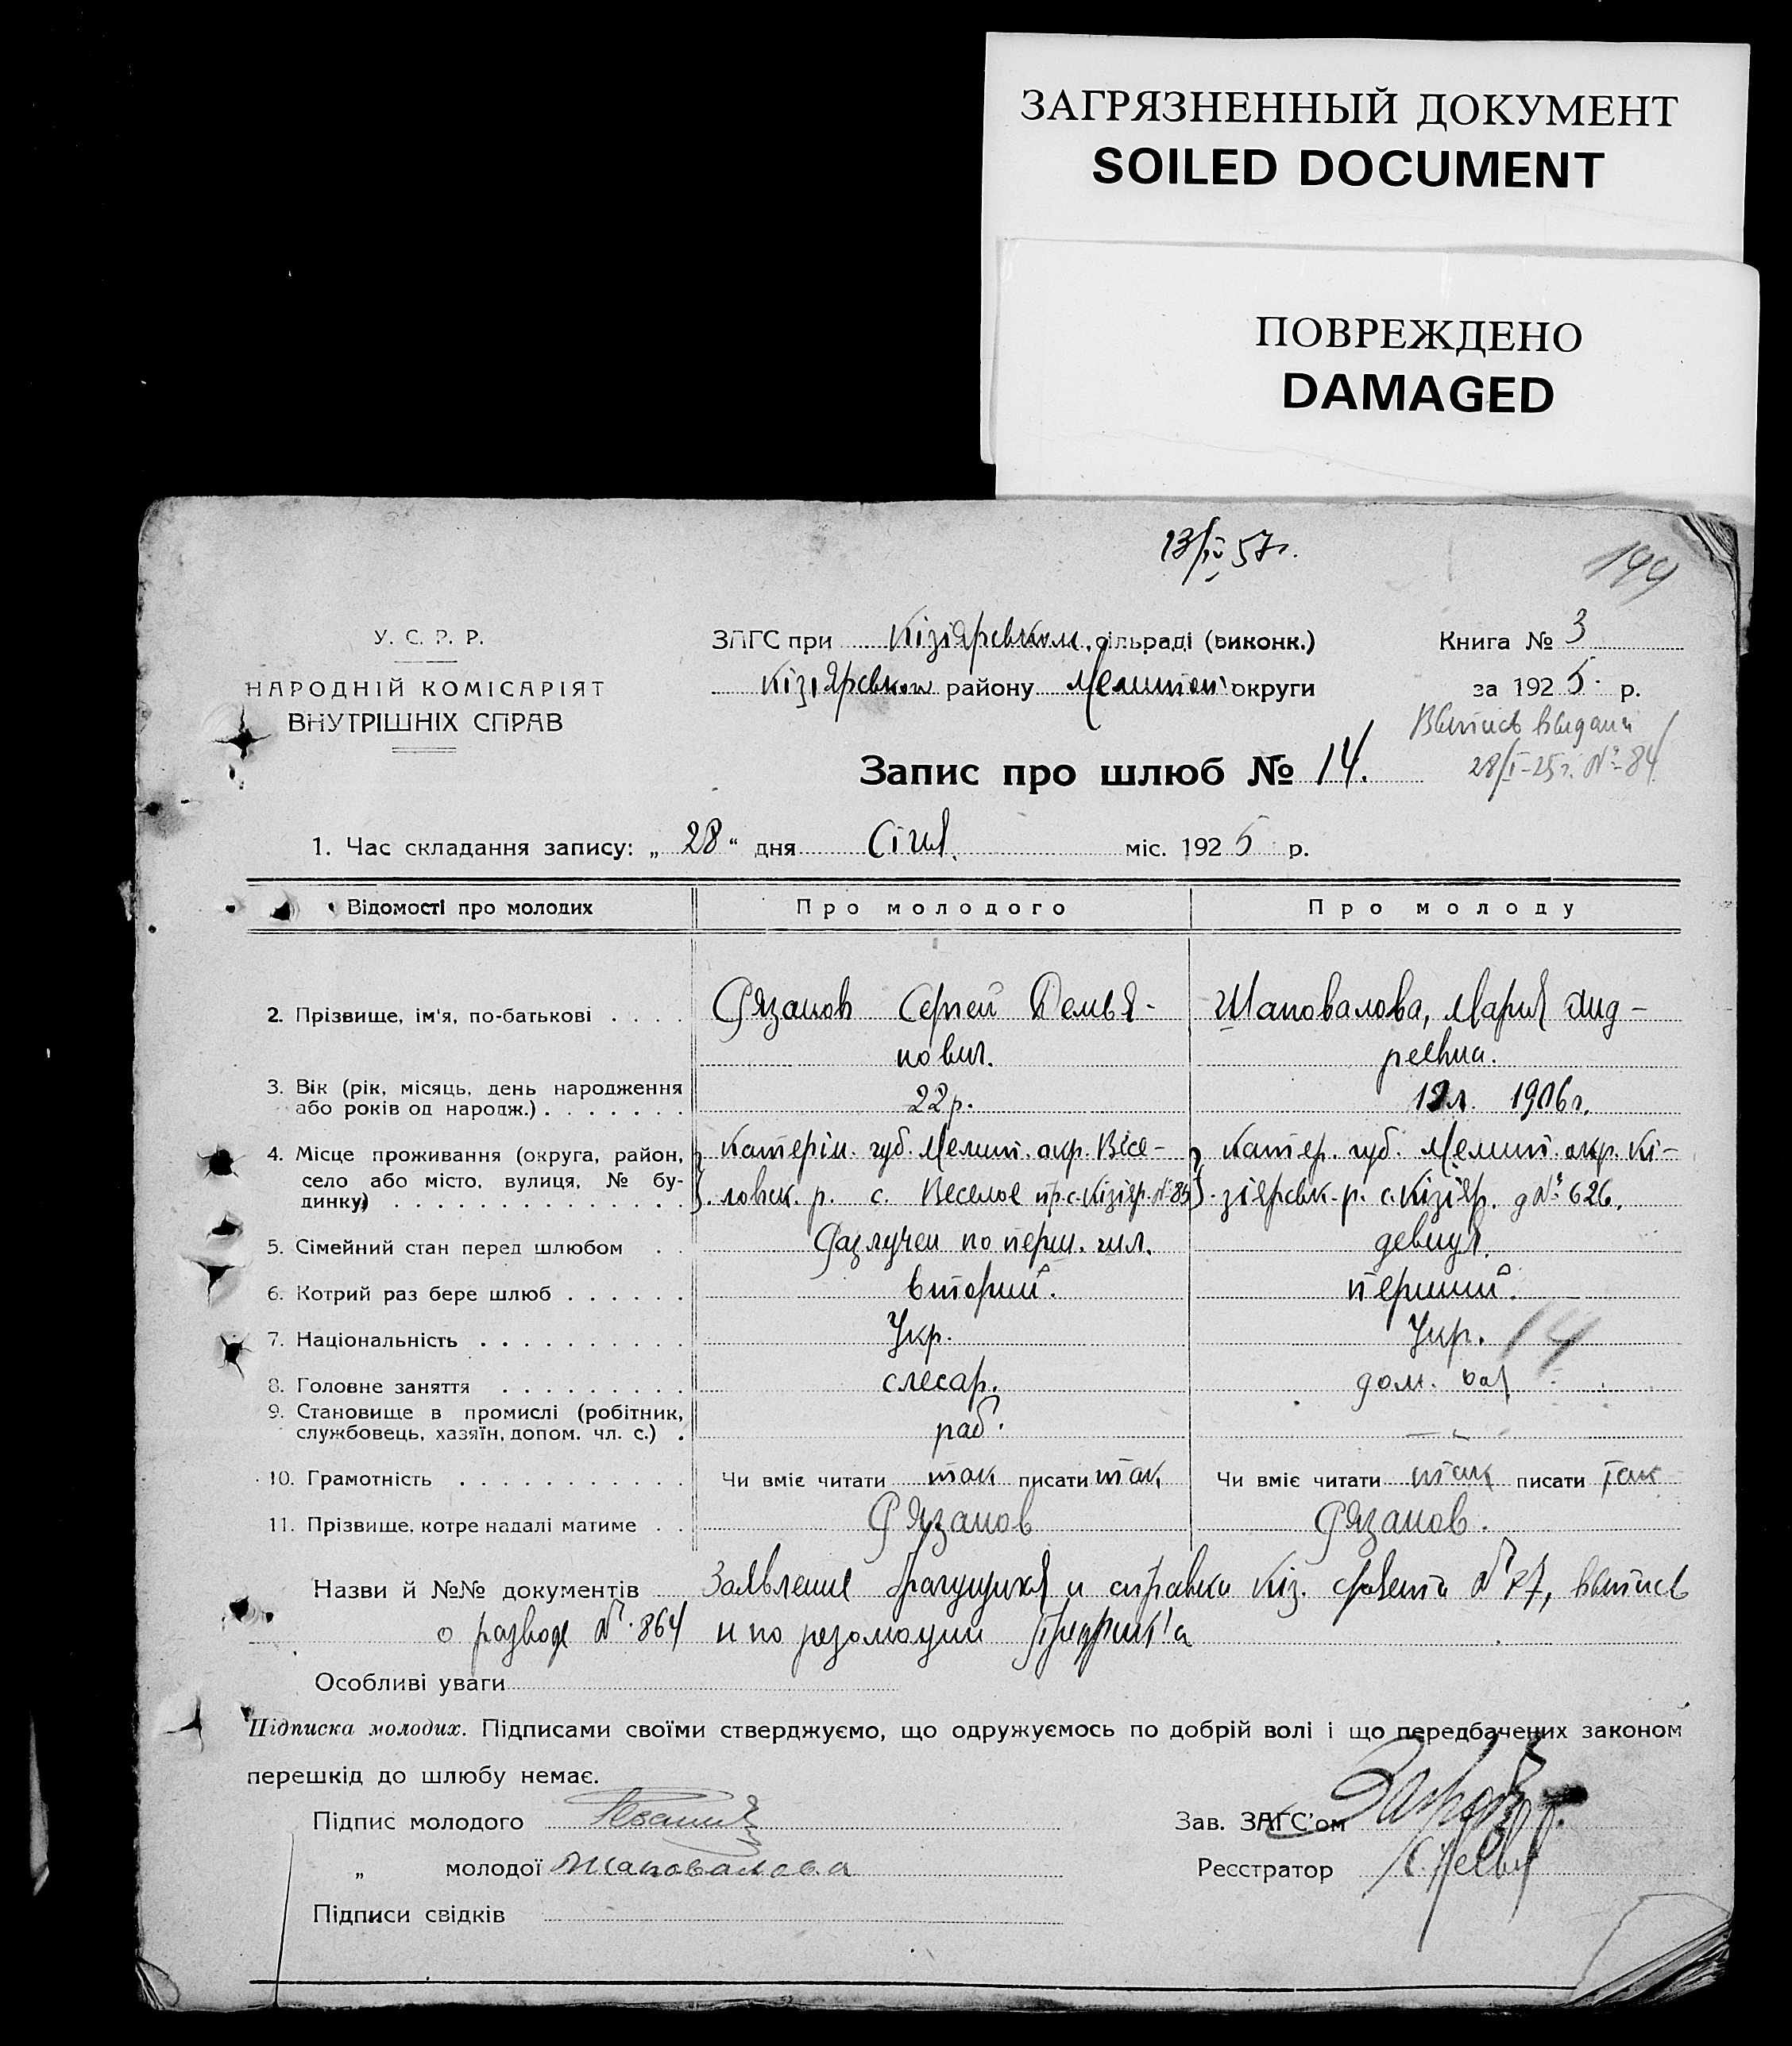 ЗАГРЯЗНЕННЫЙ ДОКУМЕНТ
SOILED DOCUMENT
ПОВРЕЖДЕНО
DAMAGED
13/IV 57г.
199
У. С. Р. Р.
НАРОДНІЙ КОМІСАРІЯТ
ВНУТРІШНІХ СПРАВ
ЗАГС при Кізіярськом сільраді (виконк.)
Кізіярском району Мелитоп округи
Книга № 3
за 1925 р.
Выпись выдана
28/I-25 г. № 84
Запис про шлюб № 14.
1. Час складання запису: „28“ дня Січня. міс. 1925 р.
Відомості про молодих
Про молодого
Про молоду
2. Прізвище, ім'я, по-батькові
Рязанов Сергей Демья-
нович.
Шаповалова, Мария Анд-
реевна.
3. Вік (рік, місяць, день народження
або років од народж.)
22р.
19л. 1906г.
4. Місце проживання (округа, район,
село або місто, вулиця, № бу-
динку)
Катерін. губ. Мелит. окр. Весе-
ловск. р. с. Веселое пр. с. Кізіяр. №85
Катер. губ. Мелит. окр. Кі-
зіярськ. р. с. Кізіяр. д № 626.
5. Сімейний стан перед шлюбом
Разлучен по перш. шл.
девиця.
6. Котрий раз бере шлюб
вторий.
перший.
7. Національність
Укр.
Укр.
14
8. Головне заняття
слесар.
дом. хоз
9. Становище в промислі (робітник,
службовець, хазяїн, допом. чл. с.)
раб.
— „ —
10. Грамотність
Чи вміє читати так писати так
Чи вміє читати так писати так
11. Прізвище, котре надалі матиме
Рязанов
Рязанов.
Назви й №№ документів Заявление брачущихся и справки Кіз. с/совета № 27, выпись
о разводе № 864 и по резолюции
Особливі уваги
Підписка молодих. Підписами своїми стверджуємо, що одружуємось по добрій волі і що передбачених законом
перешкід до шлюбу немає.
Підпис молодого
„ молодої Шаповалова
Підписи свідків
Зав. ЗАГС'ом
Реєстратор